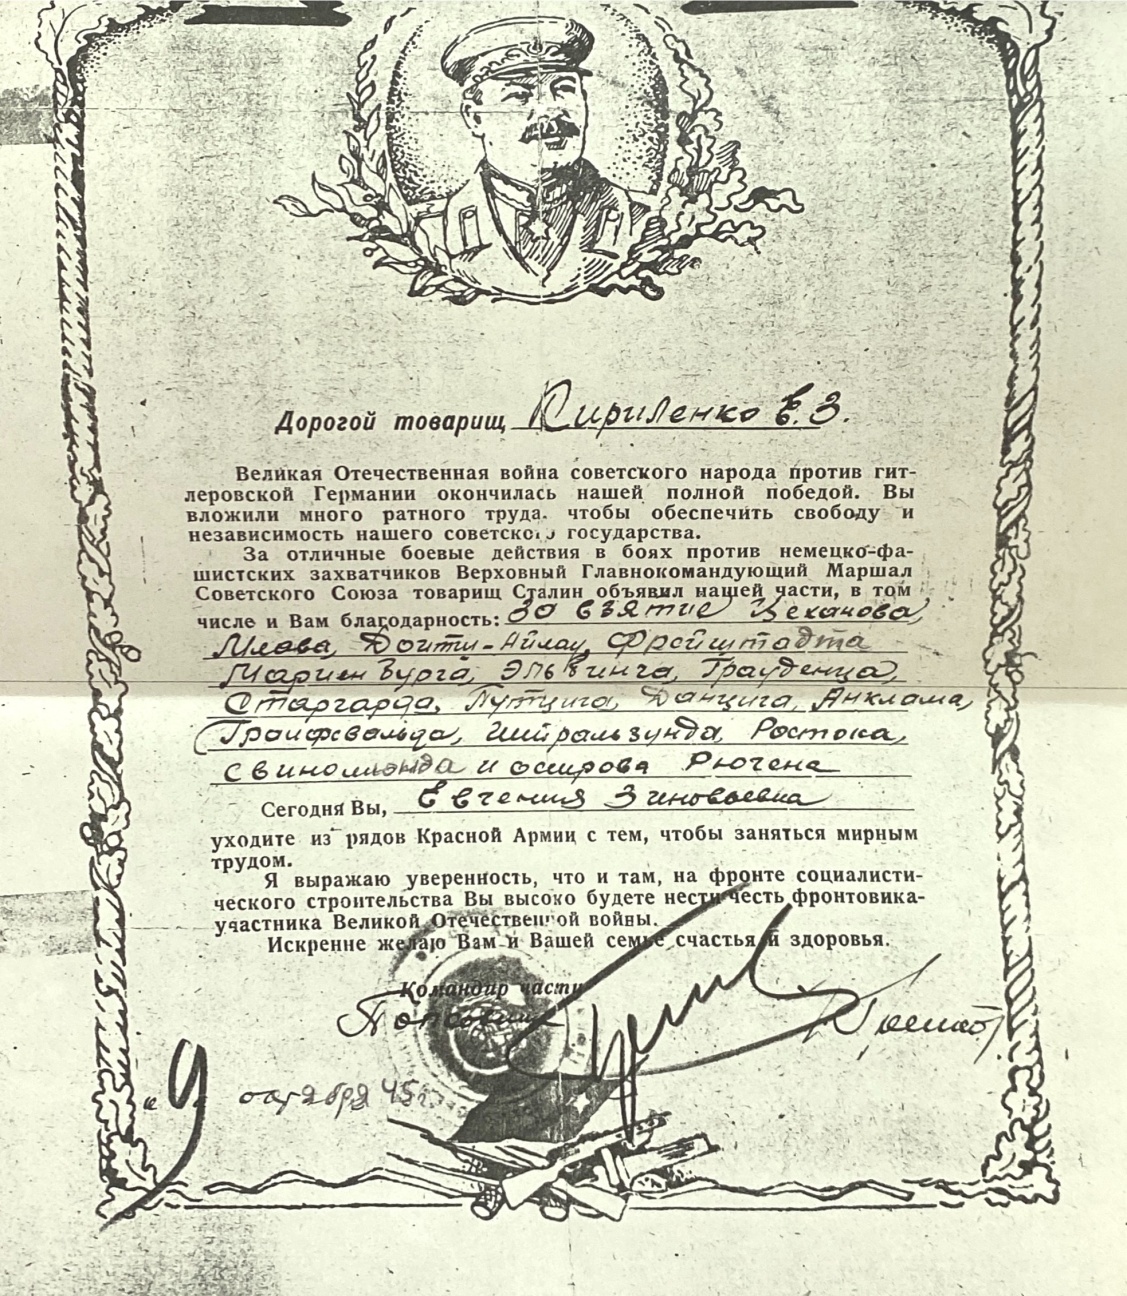 Дорогой товарищ Кириленко Е. З.
Великая Отечественная война советского народа против гит-
леровской Германии окончилась нашей полной победой. Вы
вложили много ратного труда. чтобы обеспечить свободу и
независимость нашего советского государства.
За отличные боевые действия в боях против немецко-фа-
шистских захватчиков Верховный Главнокомандующий Маршал
Советского Союза товарищ Сталин объявил нашей части, в том
числе и Вам благодарность: За взятие Цеханова,
Млава, Дойти-Айлау, Фрейштадта
Мариенбурга, Эльбинга, Грауденца,
Старгарда, Путцига, Данцига, Анклама,
Грайфсвальда, Штральзунда, Ростока,
Свиномюнда и острова Рюгена
Сегодня Вы, Евгения Зиновьевна
уходите из рядов Красной Армии с тем, чтобы заняться мирным
трудом.
Я выражаю уверенность, что и там, на фронте социалисти-
ческого строительства Вы высоко будете нести честь фронтовика-
участника Великой Отечественной войны.
Искренне желаю Вам и Вашей семье счастья и здоровья.
Командир части
"9" октября 45г.